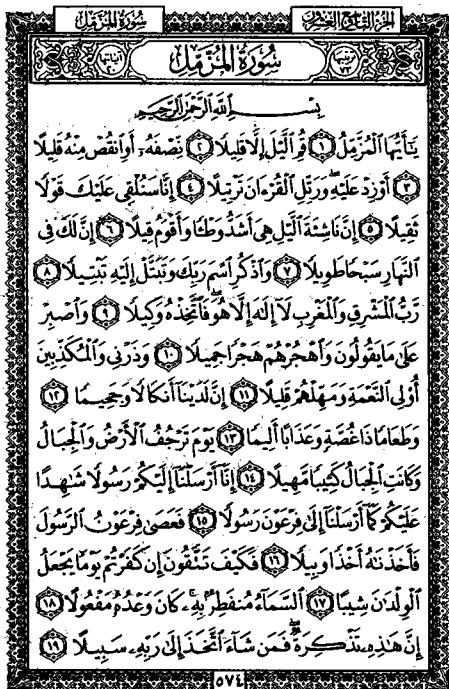 الجزء التاسع والعشرون سورة المزمل
ترتيبها ٧٣ سورة المزمل آياتها ٢٠
بِسْمِ اللَّهِ الرَّحْمَٰنِ الرَّحِيمِ
يَٰٓأَيُّهَا ٱلْمُزَّمِّلُ ١ قُمِ ٱلَّيْلَ إِلَّا قَلِيلًا ٢ نِّصْفَهُۥٓ أَوِ ٱنقُصْ مِنْهُ قَلِيلًا
٣ أَوْ زِدْ عَلَيْهِ وَرَتِّلِ ٱلْقُرْءَانَ تَرْتِيلًا ٤ إِنَّا سَنُلْقِى عَلَيْكَ قَوْلًا
ثَقِيلًا ٥ إِنَّ نَاشِئَةَ ٱلَّيْلِ هِىَ أَشَدُّ وَطْـًٔا وَأَقْوَمُ قِيلًا ٦ إِنَّ لَكَ فِى
ٱلنَّهَارِ سَبْحًا طَوِيلًا ٧ وَٱذْكُرِ ٱسْمَ رَبِّكَ وَتَبَتَّلْ إِلَيْهِ تَبْتِيلًا ٨
رَّبُّ ٱلْمَشْرِقِ وَٱلْمَغْرِبِ لَآ إِلَٰهَ إِلَّا هُوَ فَٱتَّخِذْهُ وَكِيلًا ٩ وَٱصْبِرْ
عَلَىٰ مَا يَقُولُونَ وَٱهْجُرْهُمْ هَجْرًا جَمِيلًا ١٠ وَذَرْنِى وَٱلْمُكَذِّبِينَ
أُو۟لِى ٱلنَّعْمَةِ وَمَهِّلْهُمْ قَلِيلًا ١١ إِنَّ لَدَيْنَآ أَنكَالًا وَجَحِيمًا ١٢
وَطَعَامًا ذَا غُصَّةٍ وَعَذَابًا أَلِيمًا ١٣ يَوْمَ تَرْجُفُ ٱلْأَرْضُ وَٱلْجِبَالُ
وَكَانَتِ ٱلْجِبَالُ كَثِيبًا مَّهِيلًا ١٤ إِنَّآ أَرْسَلْنَآ إِلَيْكُمْ رَسُولًا شَٰهِدًا
عَلَيْكُمْ كَمَآ أَرْسَلْنَآ إِلَىٰ فِرْعَوْنَ رَسُولًا ١٥ فَعَصَىٰ فِرْعَوْنُ ٱلرَّسُولَ
فَأَخَذْنَٰهُ أَخْذًا وَبِيلًا ١٦ فَكَيْفَ تَتَّقُونَ إِن كَفَرْتُمْ يَوْمًا يَجْعَلُ
ٱلْوِلْدَٰنَ شِيبًا ١٧ ٱلسَّمَآءُ مُنفَطِرٌۢ بِهِۦ كَانَ وَعْدُهُۥ مَفْعُولًا ١٨
إِنَّ هَٰذِهِۦ تَذْكِرَةٌ فَمَن شَآءَ ٱتَّخَذَ إِلَىٰ رَبِّهِۦ سَبِيلًا ١٩
٥٧٤